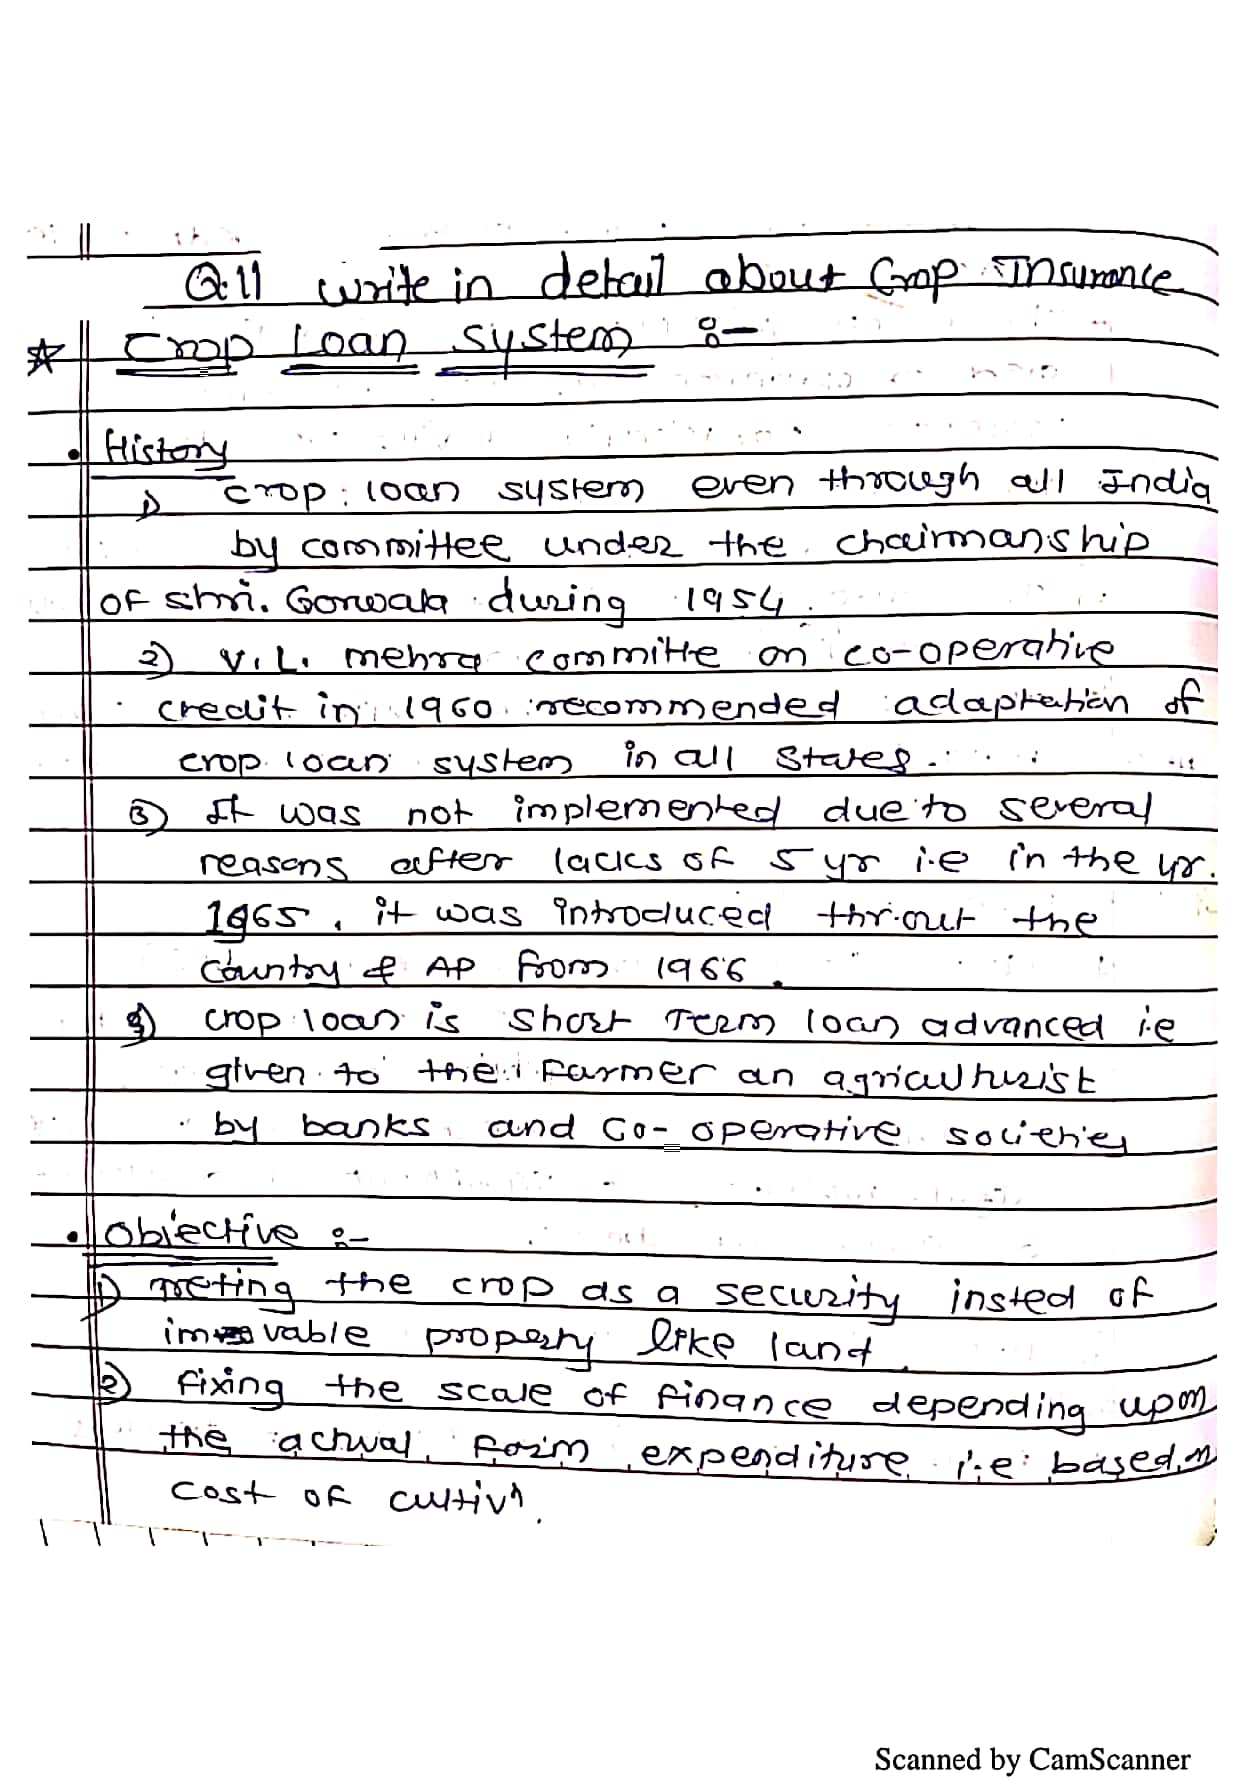 Q.11 write in detail about Crop Insurance
☆ Crop Loan System :-
• History
1) crop loan system even through all India
by committee under the chairmanship
of shri. Gorwala during 1954.
2) V.L. mehra committe on co-operative
credit in 1960 recommended adaptation of
crop loan system in all States.
3) It was not implemented due to several
reasons after lacks of 5 yr i.e in the yr.
1965, it was introduced throut the
country & AP from 1966.
4) crop loan is short Term loan advanced i.e
given to the farmer an agriculturist
by banks and Co-operative societies
• Objective :-
1) meting the crop as a security insted of
imovable property like land.
2) fixing the scale of finance depending upon
the actual farm expenditure i.e based on
cost of cultivn.
Scanned by CamScanner